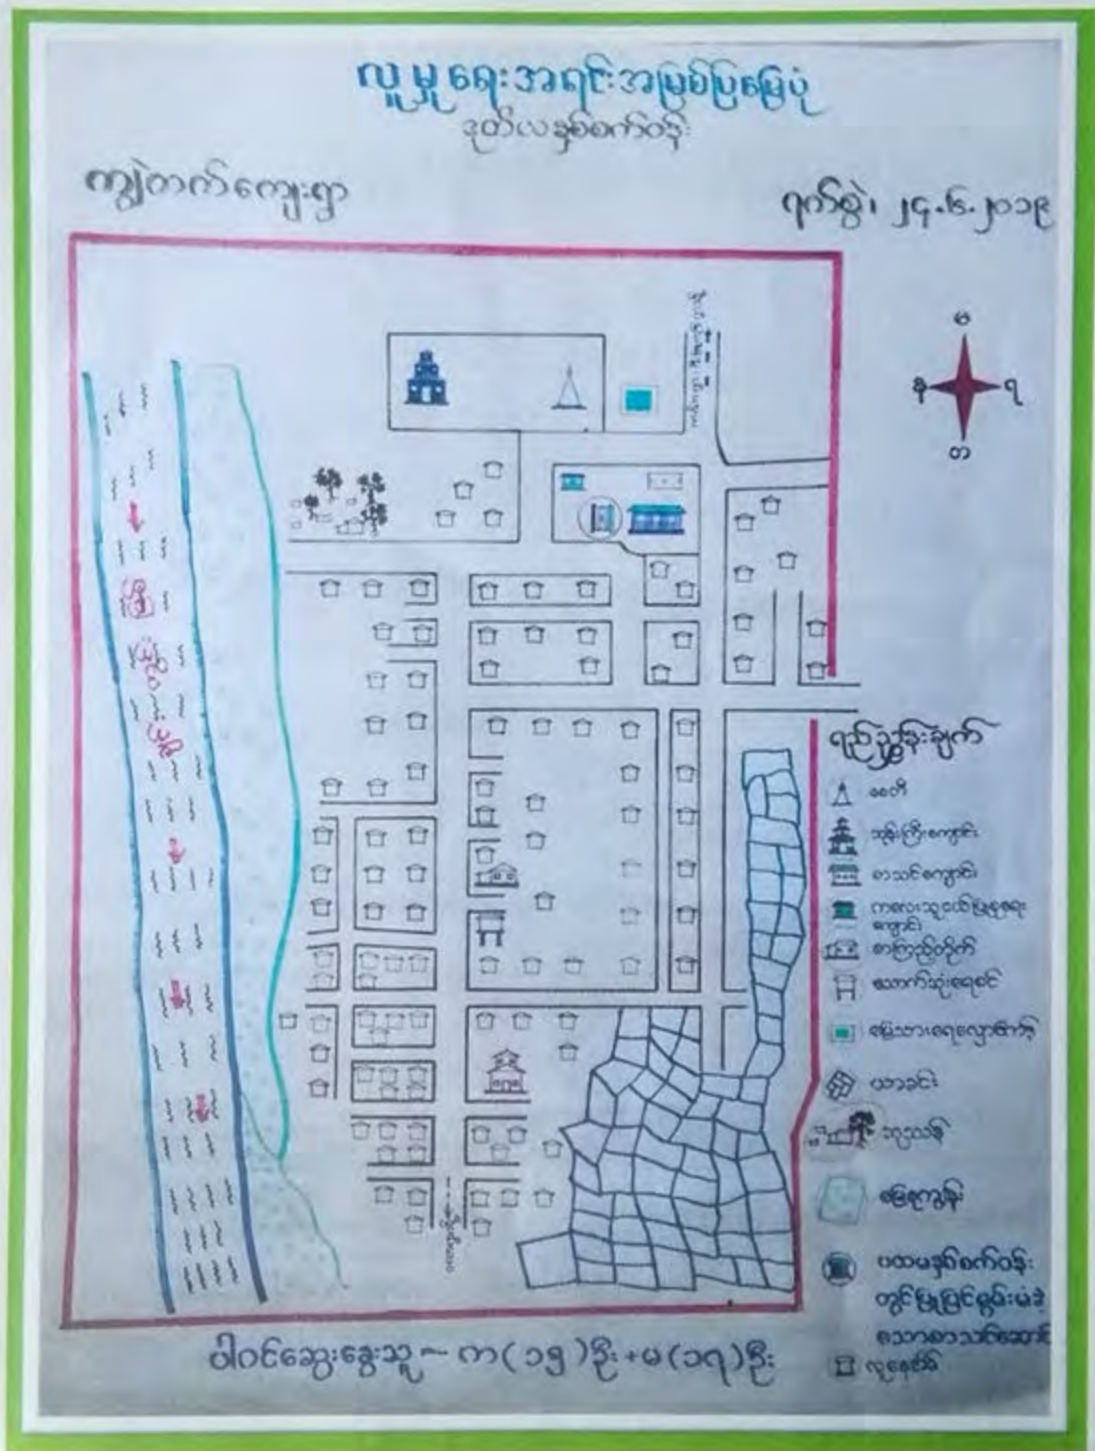 လူမှုရေးအရင်းအမြစ်ပြမြေပုံ
ဒုတိယနှစ်စက်ဝန်း
ကျွဲတက်ကျေးရွာ
ရက်စွဲ၊ ၂၄.၆.၂၀၁၉
မ
န ရ
တ
ရည်ညွှန်းချက်
စေတီ
ဘုန်းကြီးကျောင်း
စာသင်ကျောင်း
ကလေးသူငယ်ပြုစုရေး
ကျောင်း
စာကြည့်တိုက်
သောက်သုံးရေစင်
မြေသားရေလှောင်ကန်
ယာခင်း
သုဿာန်
မြေနုကျွန်း
ပထမနှစ်စက်ဝန်း
တွင်ပြုပြင်မွမ်းမံခဲ့
သောစာသင်ဆောင်
လူနေအိမ်
ပါဝင်ဆွေးနွေးသူ ~ က(၁၅)ဦး + မ(၁၇)ဦး